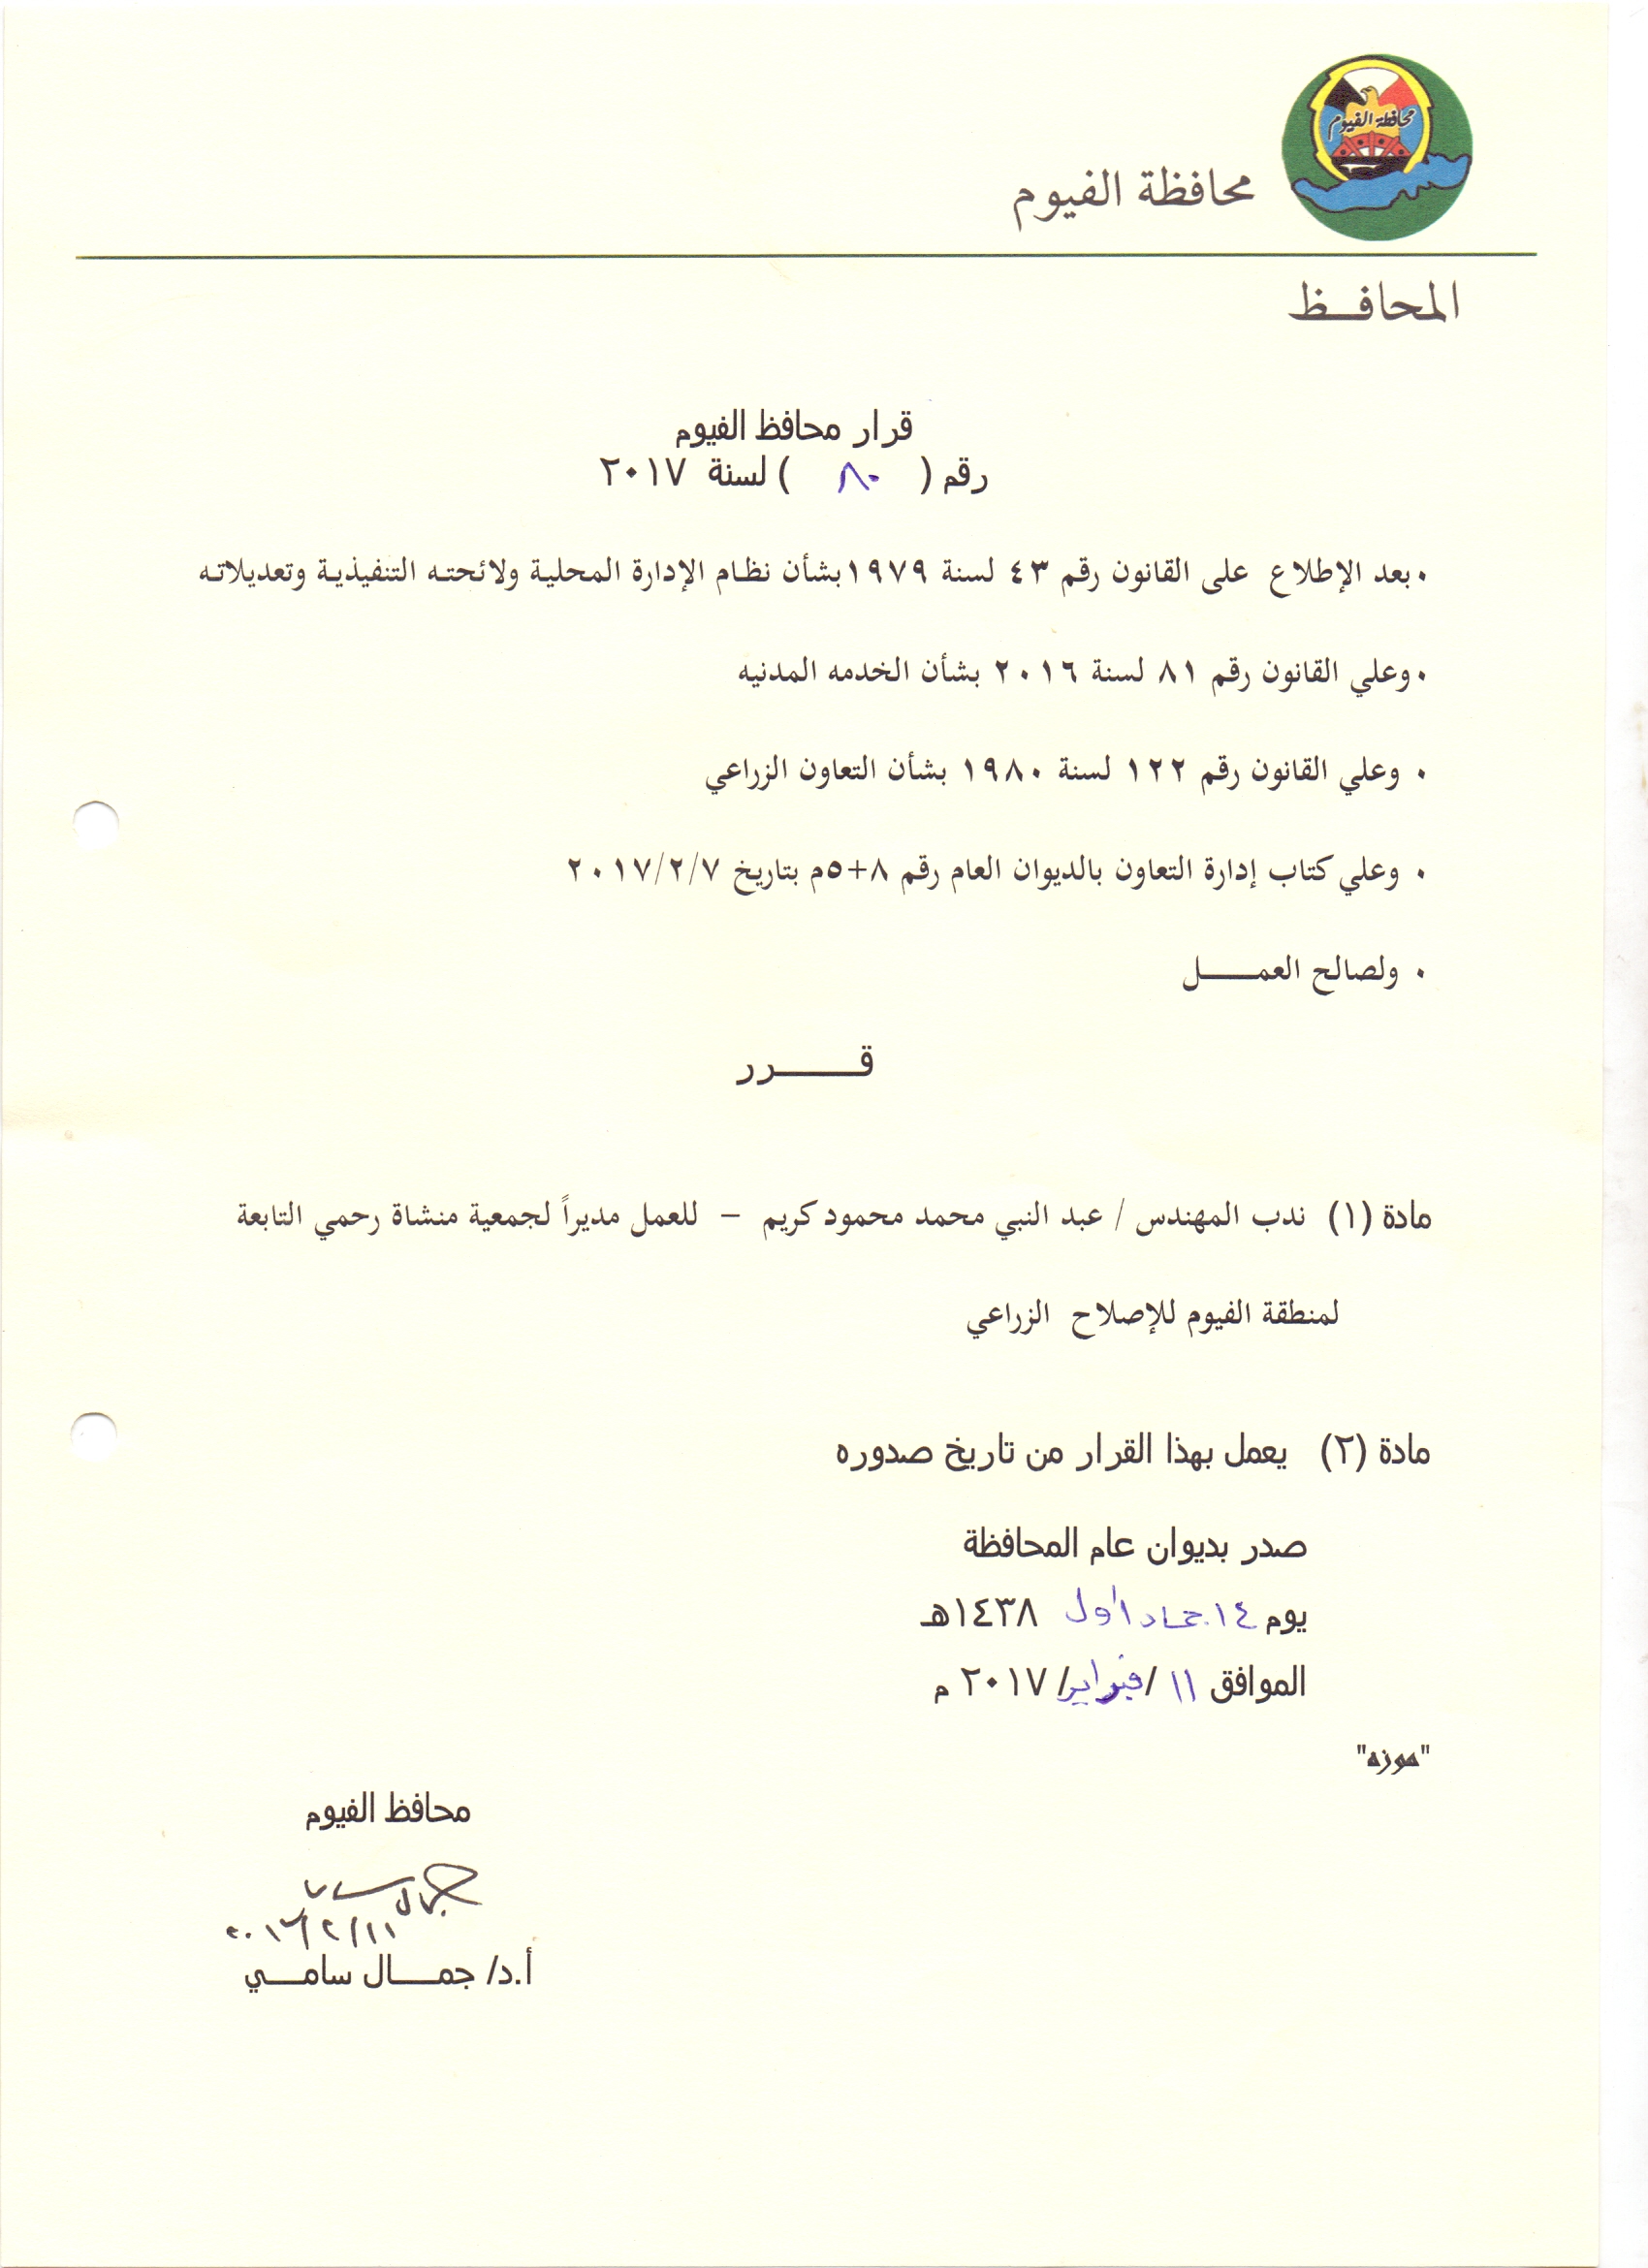 محافظة الفيوم
محافظة الفيوم
المحافـــظ
قرار محافظ الفيوم
رقم ( ٨٠ ) لسنة ٢٠١٧
• بعد الإطلاع على القانون رقم ٤٣ لسنة ١٩٧٩ بشأن نظام الإدارة المحلية ولائحته التنفيذية وتعديلاته
• وعلي القانون رقم ٨١ لسنة ٢٠١٦ بشأن الخدمه المدنيه
• وعلي القانون رقم ١٢٢ لسنة ١٩٨٠ بشأن التعاون الزراعي
• وعلي كتاب إدارة التعاون بالديوان العام رقم ٨+٥م بتاريخ ٢٠١٧/٢/٧
• ولصالح العمـــــل
قـــــــرر
مادة (١) ندب المهندس / عبد النبي محمد محمود كريم – للعمل مديراً لجمعية منشاة رحمي التابعة
لمنطقة الفيوم للإصلاح الزراعي
مادة (٢) يعمل بهذا القرار من تاريخ صدوره
صدر بديوان عام المحافظة
يوم ١٤ جماد أول ١٤٣٨هـ
الموافق ١١ /فبراير/ ٢٠١٧ م
"موزه"
محافظ الفيوم
جمال سامى
٢٠١٧/٢/١١
أ.د/ جمـــــال سامـــــي